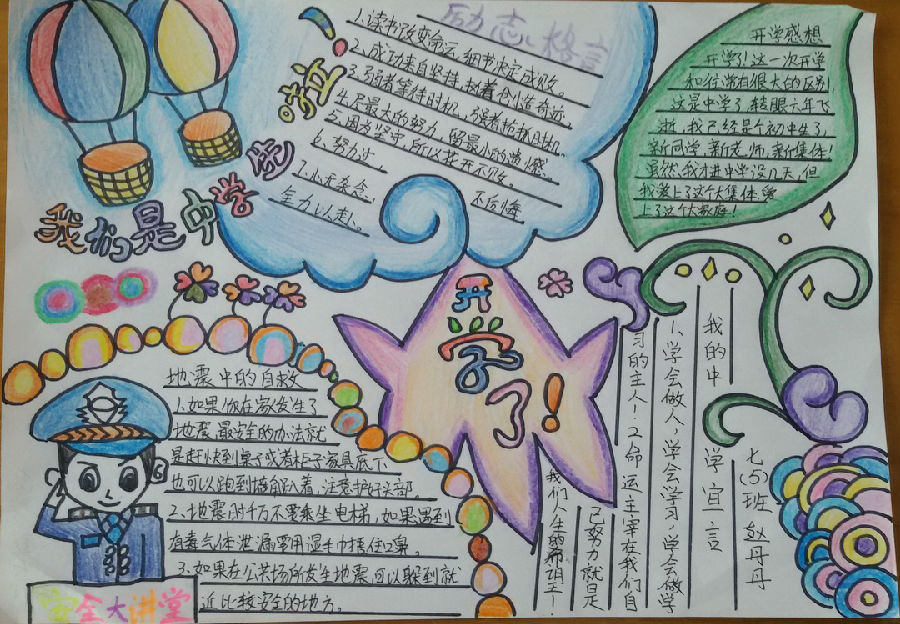 我们是中学生啦!
励志格言
1.读书改变命运,细节决定成败。
2.成功来自坚持,执着创造奇迹。
3.弱者等待时机,强者创造时机。
4.尽最大的努力,留最小的遗憾。
5.因为坚守,所以花开不败。
6.努力过
不后悔
7.心无杂念.
全力以赴.
开学感想
开学了!这一次开学
和往常有很大的区别
这是中学了,转眼六年飞
逝,我已经是个初中生了,
新同学,新老师,新集体!
虽然,我才进中学没几天,但
我爱上了这个大集体,爱
上了这个大家庭!
开学了!
地震中的自救
1.如果你在家发生了
地震,最安全的办法就
是赶快到桌子或者柜子家具底下
也可以跑到墙角趴着,注意护好头部。
2.地震时千万不要乘坐电梯,如果遇到
有毒气体泄漏要用湿毛巾捂住口鼻。
3.如果在公共场所发生地震,可以躲到就
近比较安全的地方。
安全大讲堂
我的中
学宣言
七(5)班 赵丹丹
1、学会做人,学会学习,学会做学
习的主人!2命运主宰在我们自
己努力就是
我们人生的希望!